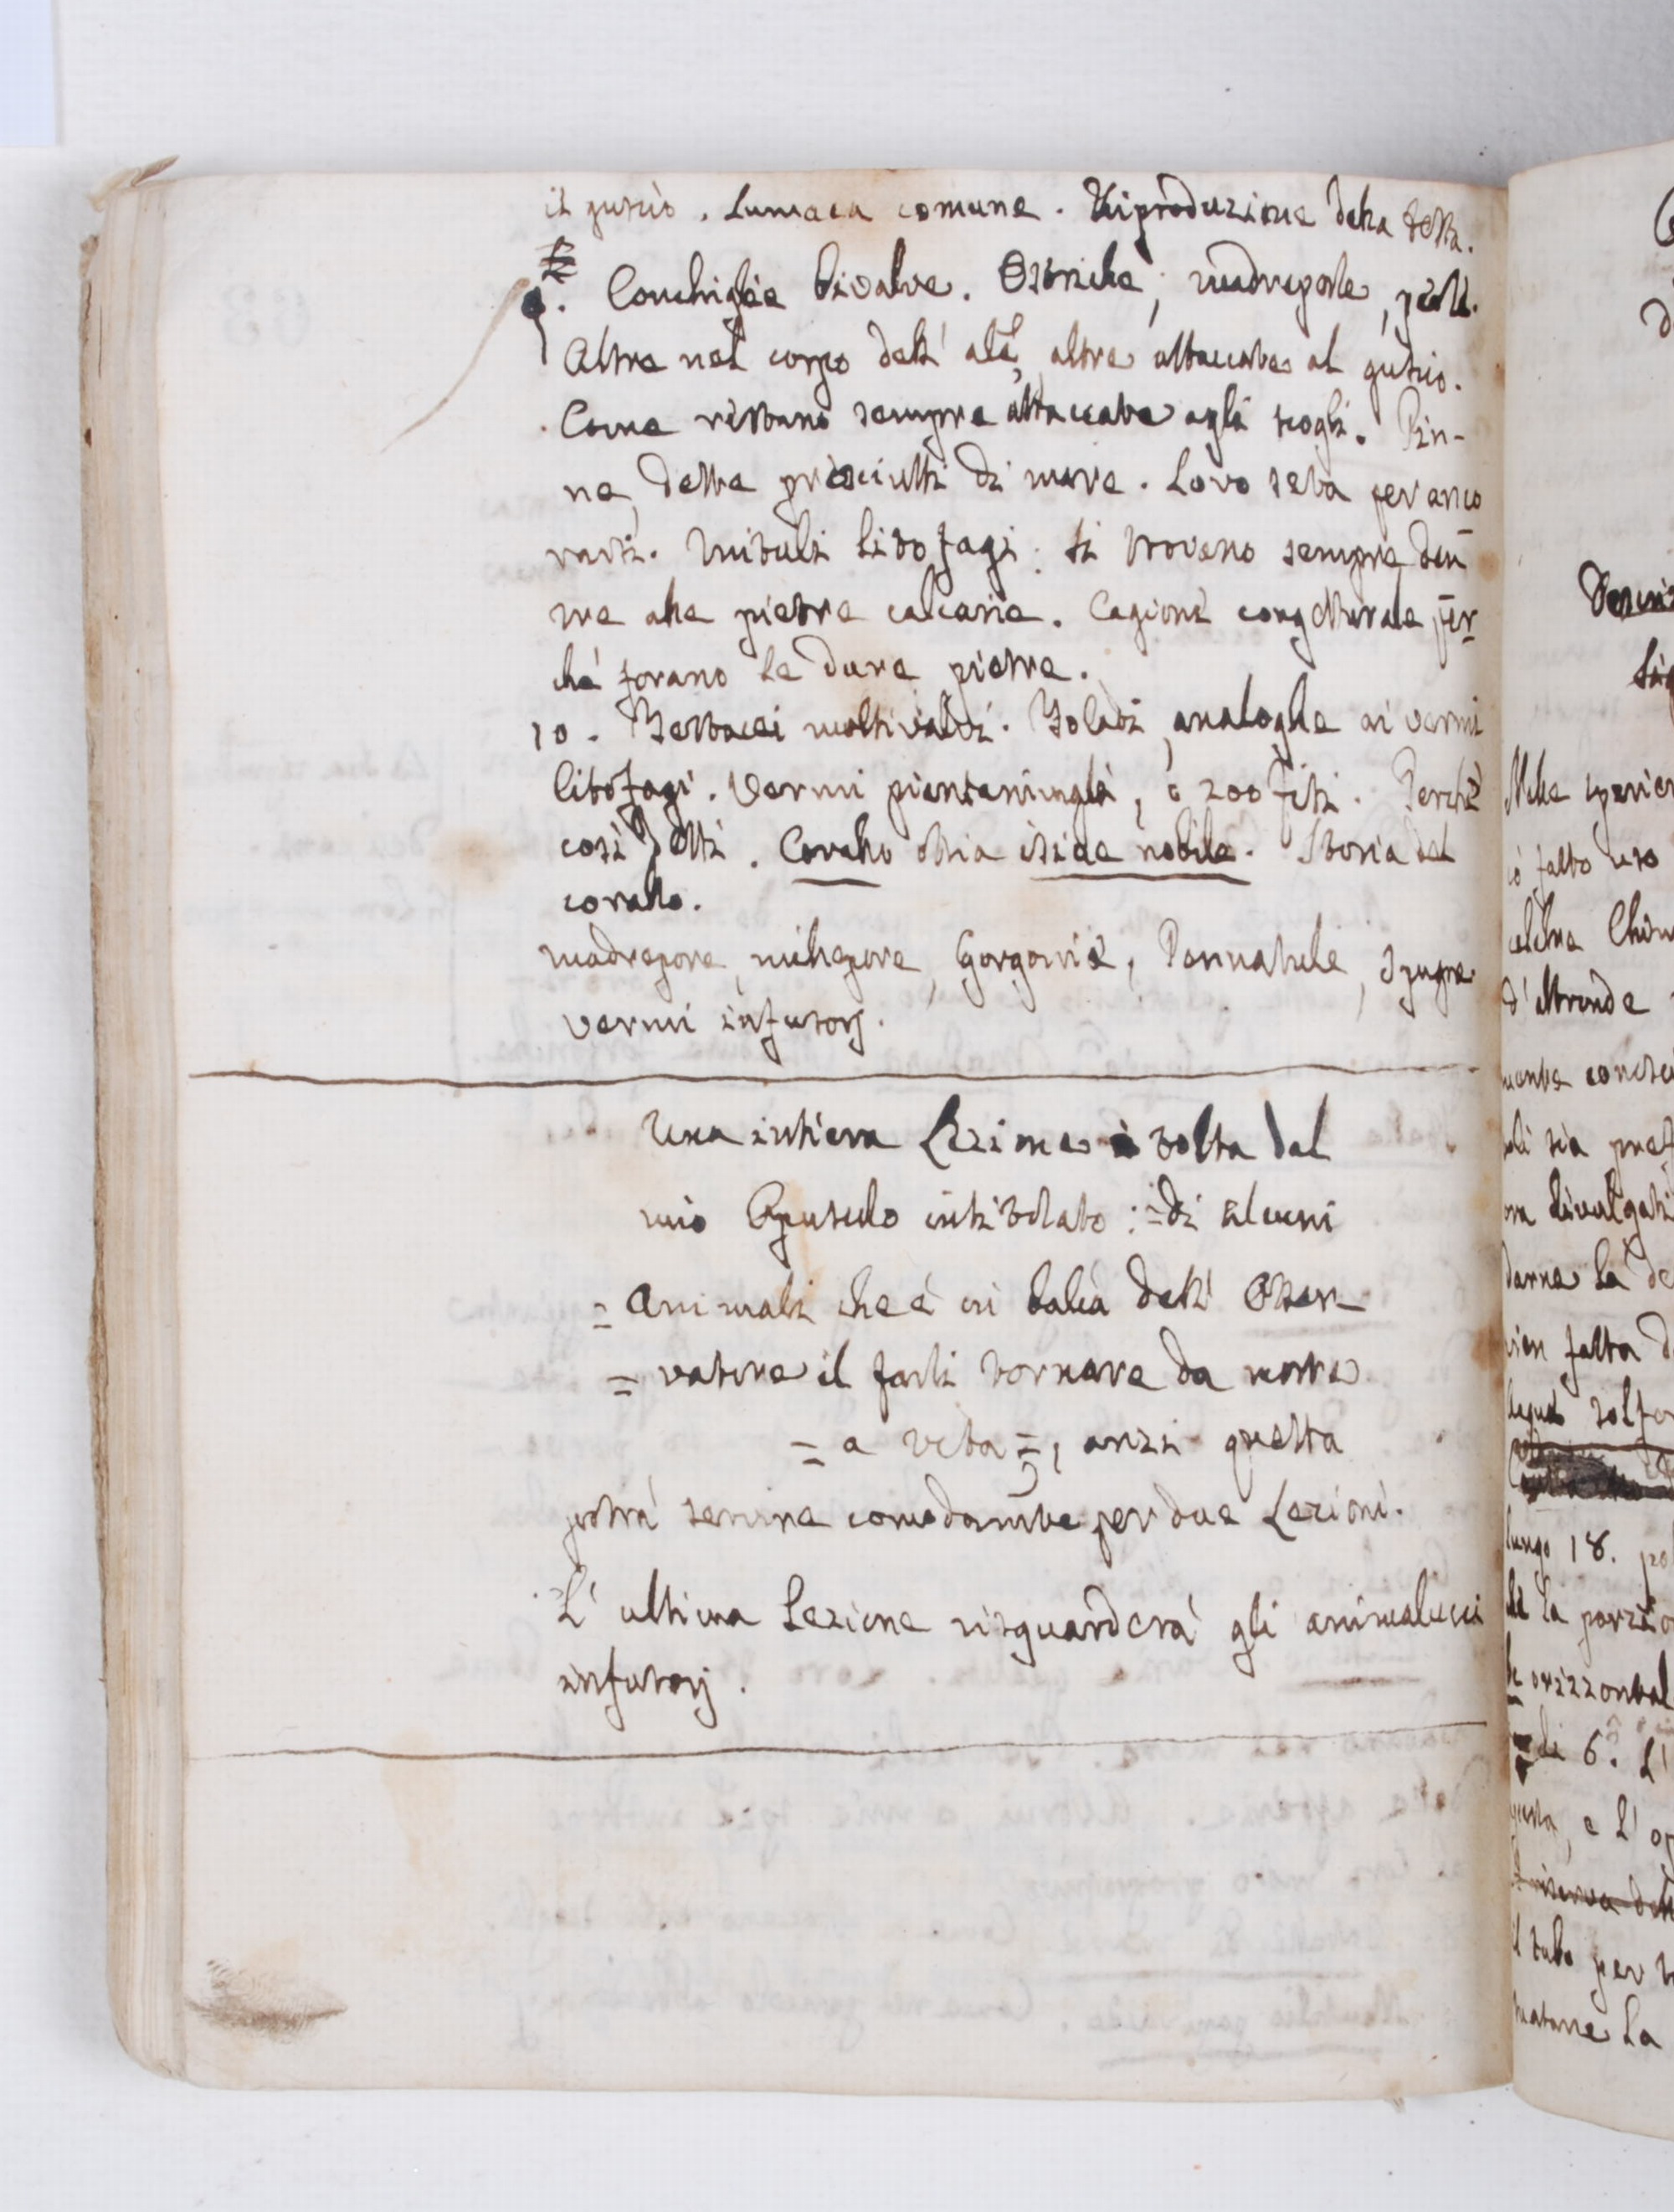 il guscio. Lumaca comune. Riproduzione della testa.
9. Conchiglie bivalve. Ostriche, madreperle, perle.
Altre nel corpo dell' ale, altre attaccate al guscio.
Come restano sempre attaccate agli scogli. Pin-
ne, dette presciutti di mare. Loro seta per anco
rarsi. Mituli litofagi: si trovano sempre den
tre alle pietre calcarie. Cagioni congetturale per
ché forano le dure pietre.
10. Testacei moltivalvi. Foladi, analoghe ai vermi
litofagi. Vermi piantanimali, o zoofiti. Perché
così detti. Corallo ossia iside nobile. Storia del
corallo.
madrepore, millepore, Gorgonie, Pennatule, Spugne
vermi infusorj.
Una intiera Lezione è tolta dal
mio Opuscolo intitolato: = di alcuni
= Animali che è in balìa dell' Osser-
= vatore il farli tornare da morte
= a vita =, anzi questa
potrà servire comodamte per due Lezioni.
L' ultima Lezione risguarderà gli animalucci
infusorj.
Nelle sperien
ò fatto uso
celebre
d'altronde
mente
oli sia
ora divulgati
darne la de
vien fatta
solfor
lungo 18.
la porzio
orizzontal
di 6. L'
questa, e l'
il tubo per
la